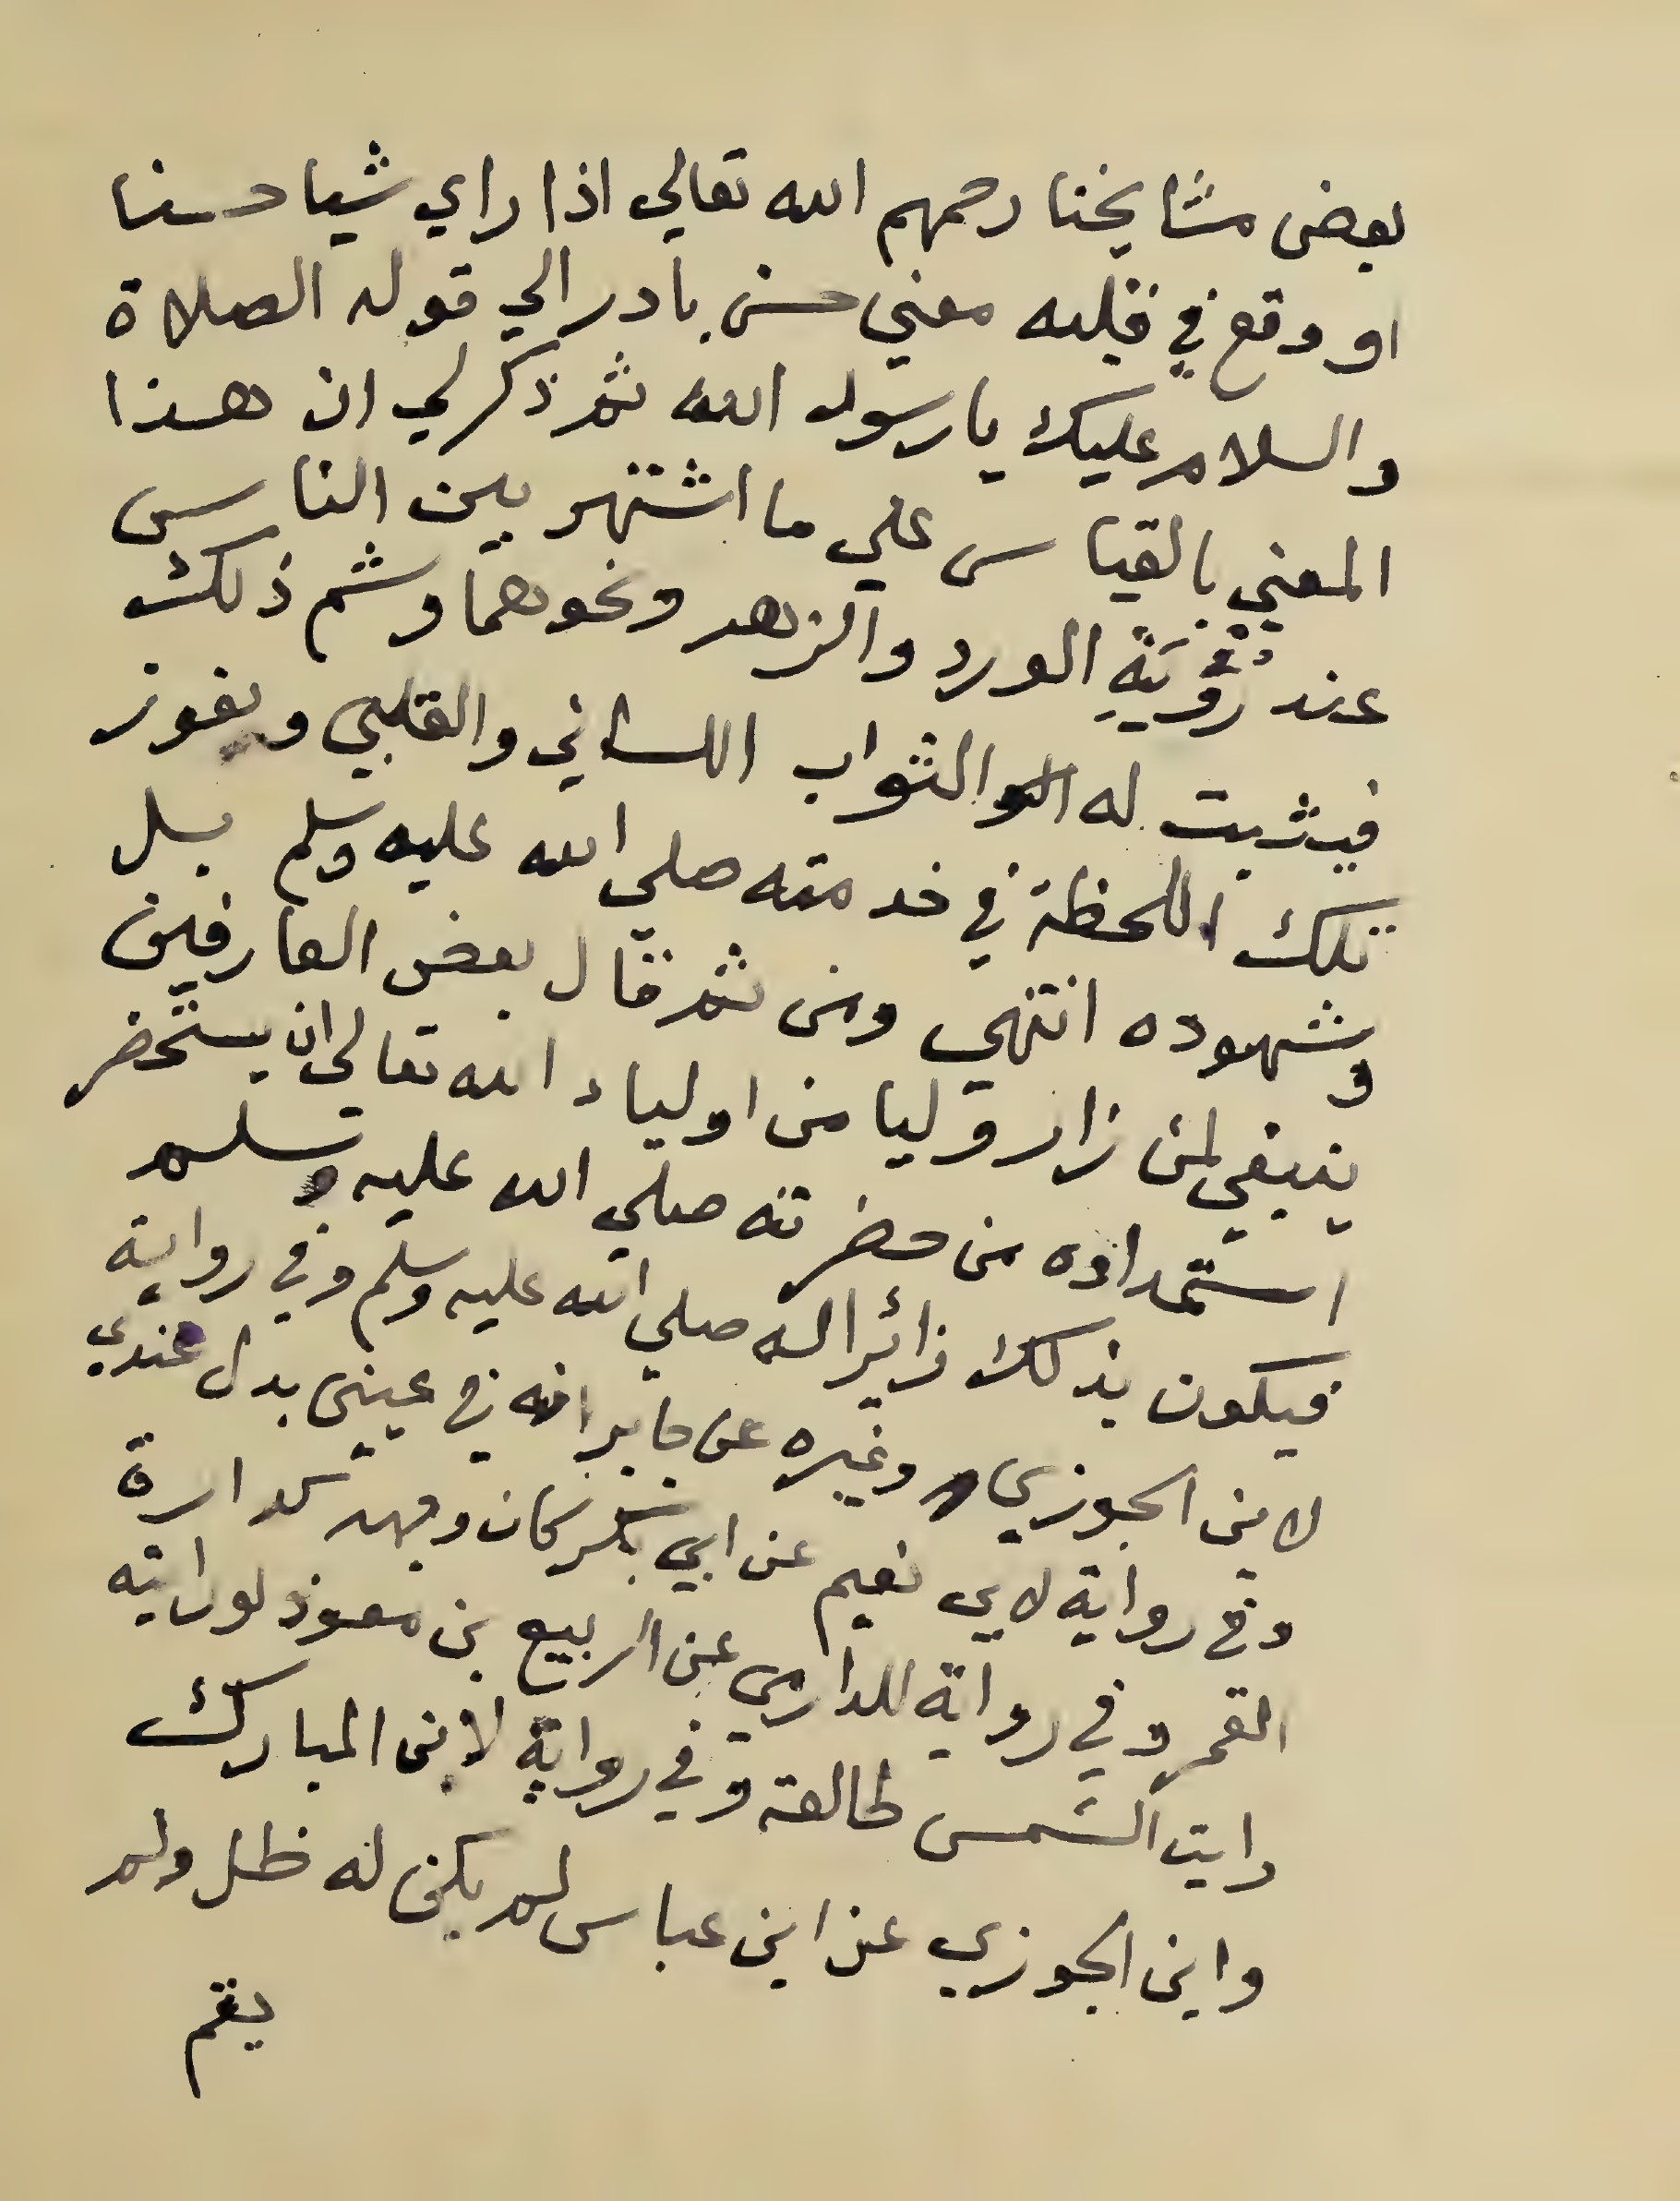 بعض مشايخنا رحمهم الله تعالي اذا راي شيا حسنا
او وقع في قلبه معني حسن بادر الي قوله الصلاة
والسلام عليك يا رسول الله ثم ذكر لي ان هذا
المعني بالقياس علي ما اشتهر بين الناس
عند رؤية الورد والزهر ونحوهما وشم ذلك
فيثبت له الثواب اللساني والقلبي ويفوز
تلك اللحظة في خدمته صلي الله عليه وسلم بل
وشهوده انتهي ومن ثم قال بعض العارفين
ينبغي لمن زار وليا من اولياء الله تعالي ان يستحضر
استمداده من حضرته صلي الله عليه وسلم
فيكون بذلك زائرا له صلي الله عليه وسلم وفي رواية
لابن الجوزي وغيره عن جابر انه في عيني بدل عندي
وفي رواية لابي نعيم عن ابي بكر كان وجهه كدارة
القمر وفي رواية للدارمي عن الربيع بن معوذ لو رايته
رايت الشمس طالعة وفي رواية لابن المبارك
وابن الجوزي عن ابن عباس لم يكن له ظل ولم
يقم